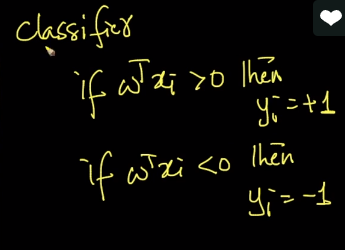 classifier
if wᵀxᵢ >0 then
yᵢ = +1
if wᵀxᵢ <0 then
yᵢ = -1